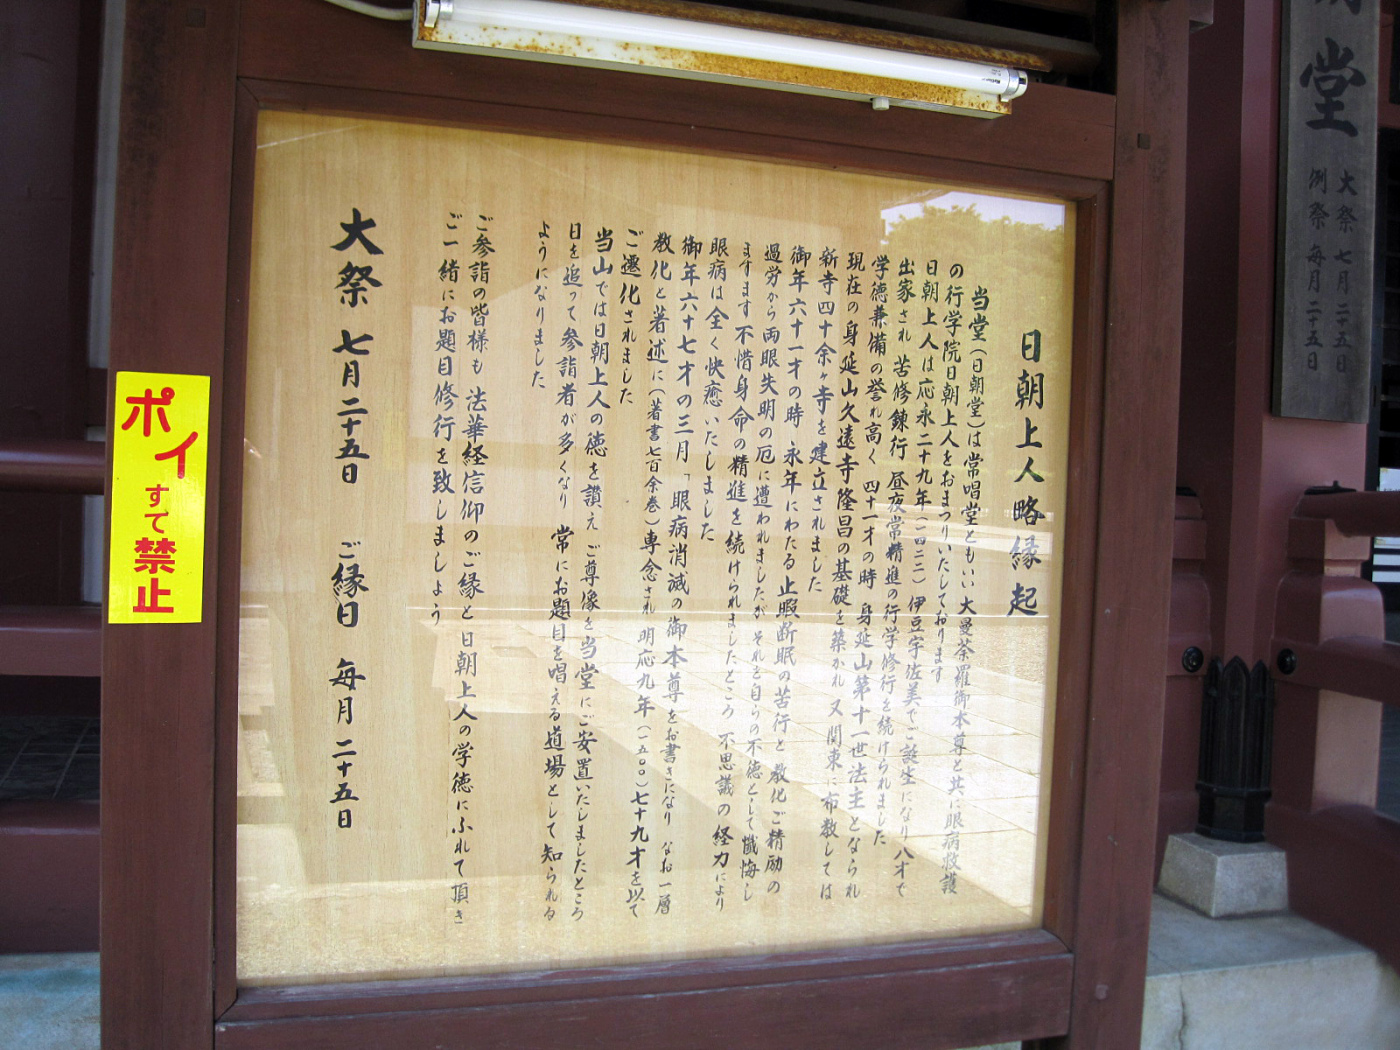 日朝上人略縁起
当堂(日朝堂)は常唱堂ともいい 大曼荼羅御本尊と共に眼病救護
の行学院日朝上人をおまつりいたしております
日朝上人は応永二十九年(一四二二)伊豆宇佐美でご誕生になり八才で
出家され 苦修錬行 昼夜常精進の行学修行を続けられました
学徳兼備の誉れ高く 四十一才の時 身延山第十一世法主となられ
現在の身延山久遠寺隆昌の基礎を築かれ 又関東に布教しては
新寺四十余ヶ寺を建立されました
御年六十一才の時 永年にわたる 止暇断眠の苦行と 教化ご精励の
過労から両眼失明の厄に遭われましたが それを自らの不徳として懺悔し
ますます不惜身命の精進を続けられましたところ 不思議の経力により
眼病は全く快癒いたしました
御年六十七才の三月「眼病消滅の御本尊をお書きになり なお一層
教化と著述に(著書七百余巻)専念され 明応九年(一五〇〇)七十九才を以て
ご遷化されました
当山では日朝上人の徳を讃え ご尊像を当堂にご安置いたしましたところ
日を追って参詣者が多くなり 常にお題目を唱える道場として知られる
ようになりました
ご参詣の皆様も 法華経信仰のご縁と日朝上人の学徳にふれて頂き
ご一緒にお題目修行を致しましょう
大祭 七月二十五日 ご縁日 毎月二十五日
ポイ
すて禁止
堂
大祭 七月二十五日
例祭 毎月二十五日